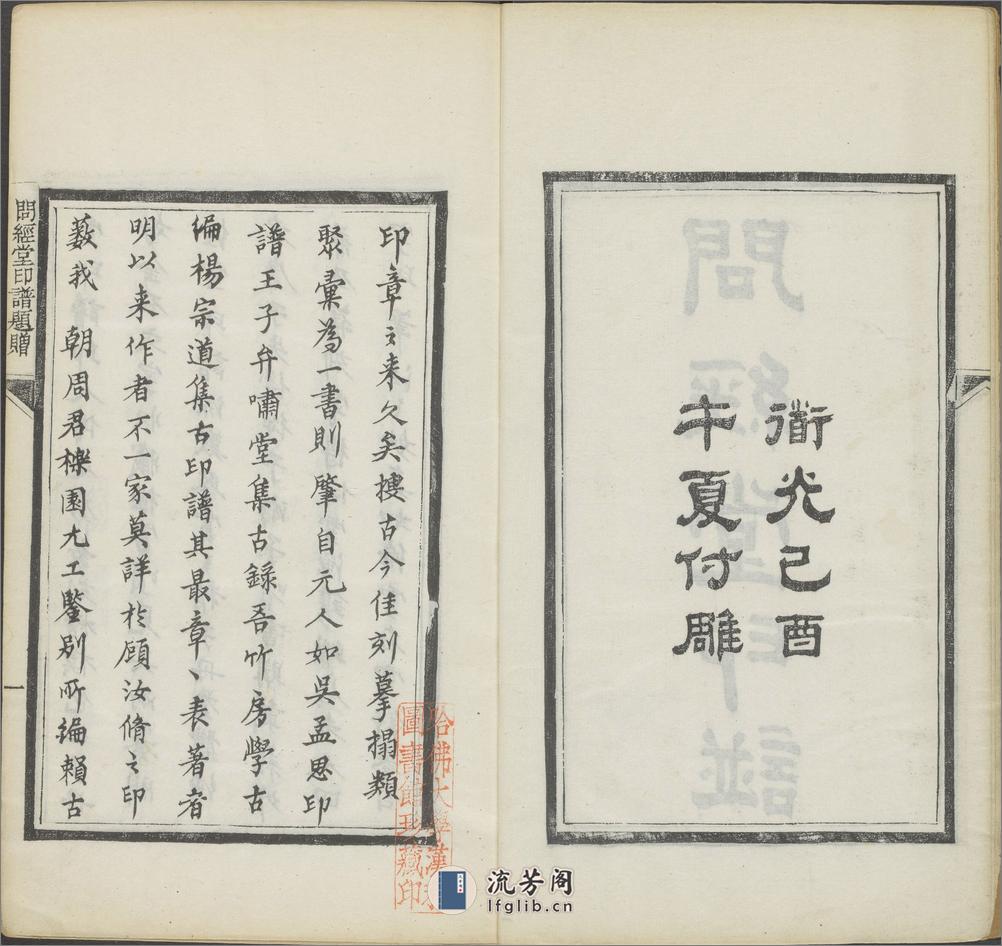 衜光己酉
午夏付雕
印章〻来久矣搜古今佳刻摹搨類
聚彙為一書則肇自元人如吳孟思印
譜王子弁嘯堂集古錄吾竹房學古
編楊宗道集古印譜其最章〻表著者
明以来作者不一家莫詳於顧汝脩〻印
藪我 朝周君櫟園尤工鑒别所編賴古
問經堂印譜題贈
一
哈佛大學漢
圖書館珍藏印
問經堂印譜
流芳阁
lfglib.cn